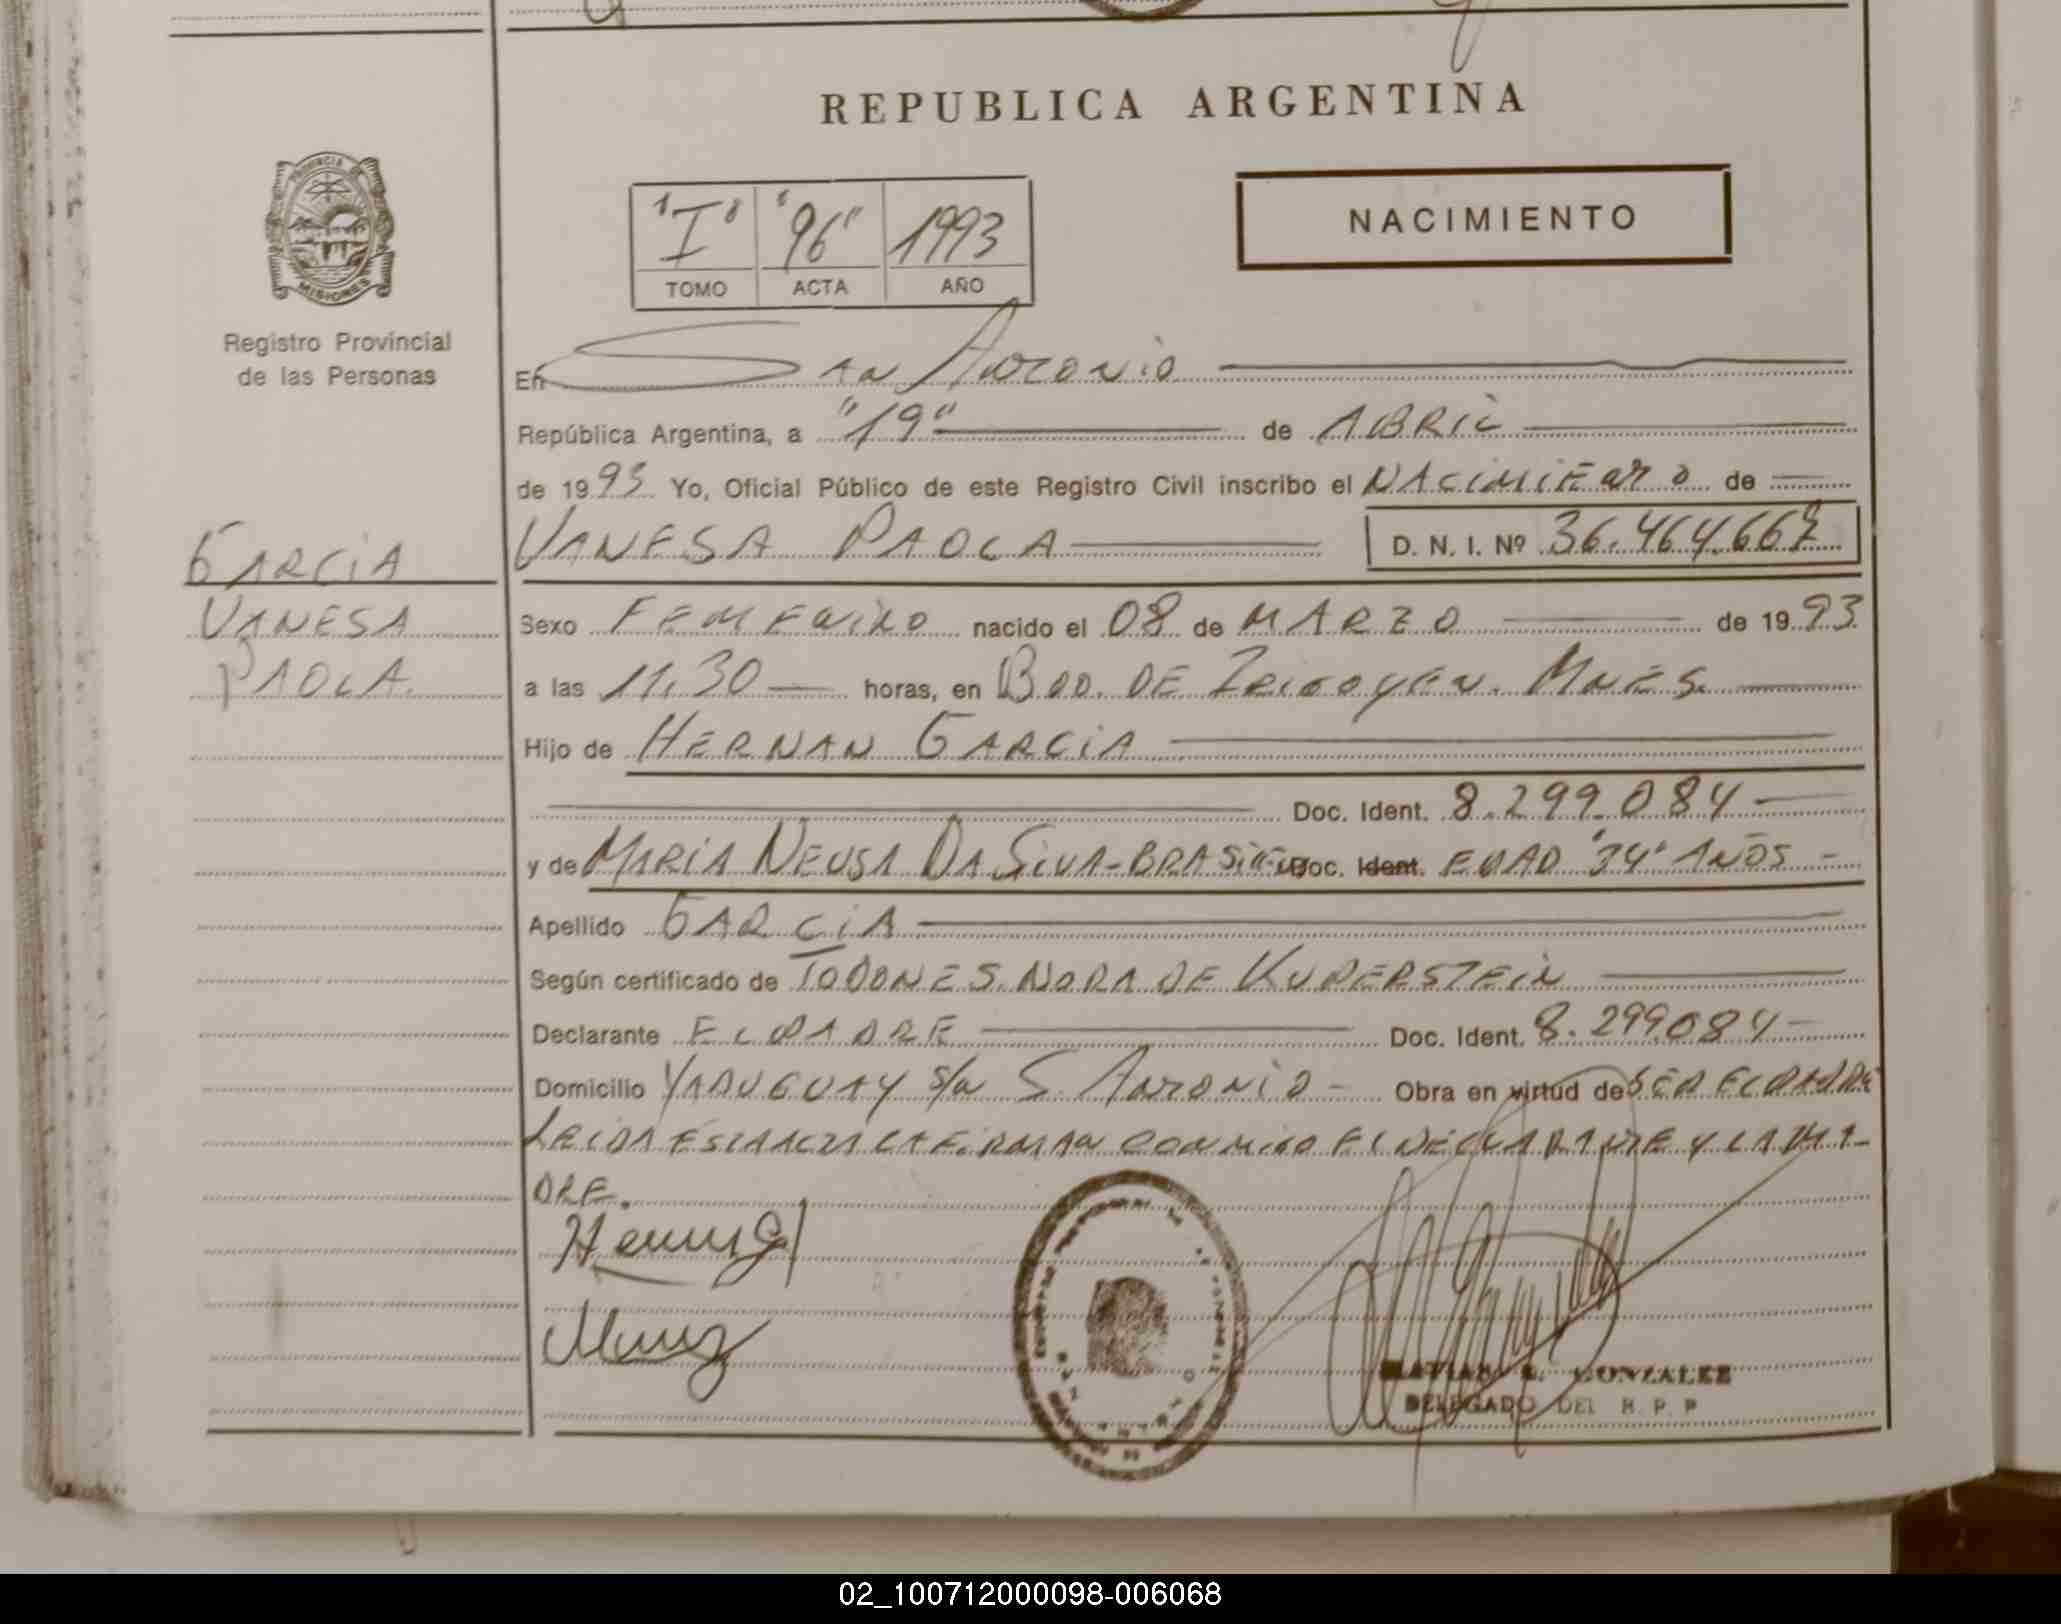 REPUBLICA ARGENTINA
PROVINCIA DE MISIONES
Registro Provincial
de las Personas
"I" "96" 1993
TOMO ACTA AÑO
NACIMIENTO
En San Antonio
República Argentina, a "19" de ABRIL
de 1993 Yo, Oficial Público de este Registro Civil inscribo el NACIMIENTO de
GARCIA
VANESA
PAOLA.
VANESA PAOLA D. N. I. Nº 36.464.667
Sexo FEMENINO nacido el 08 de MARZO de 1993
a las 11,30 horas, en BDO. DE IRIGOYEN. MNES.
Hijo de HERNAN GARCIA
Doc. Ident. 8.299.084
y de MARIA NEUSA DA SILVA - Doc. Ident. EDAD "34" AÑOS -
Apellido GARCIA
Según certificado de NORA DE KUPERSTEIN
Declarante EL PADRE Doc. Ident. 8.299.084
Domicilio s/n S. ANTONIO - Obra en virtud de SER EL PADRE
LEIDA ESTA ACTA LA FIRMAN CONMIGO EL DECLARANTE Y LA MA-
DRE.
GONZALEZ
DELEGADO DEL R. P. P
02_100712000098-006068